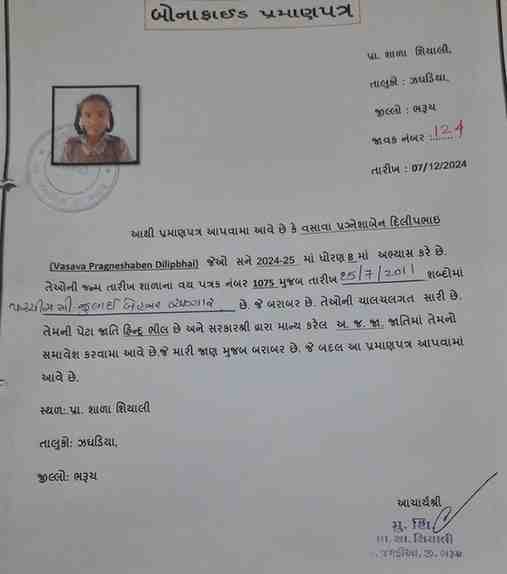 બોનાફાઈડ પ્રમાણપત્ર
પ્રા. શાળા શિયાલી,
તાલુકો : ઝઘડિયા,
જીલ્લો : ભરૂચ
જાવક નંબર : 124
તારીખ : 07/12/2024
આથી પ્રમાણપત્ર આપવામા આવે છે કે વસાવા પ્રગ્નેશાબેન દિલીપભાઇ
(Vasava Pragneshaben Dilipbhai) જેઓ સને 2024-25 માં ધોરણ 8 માં અભ્યાસ કરે છે.
તેઓની જન્મ તારીખ શાળાના વય પત્રક નંબર 1075 મુજબ તારીખ 25/7/2011 શબ્દોમાં
પચ્ચીસ મી જુલાઈ બેહજાર અગીયાર છે. જે બરાબર છે. તેઓની ચાલચલગત સારી છે.
તેમની પેટા જાતિ હિન્દુ ભીલ છે અને સરકારશ્રી દ્વારા માન્ય કરેલ અ. જ. જા. જાતિમાં તેમનો
સમાવેશ કરવામા આવે છે.જે મારી જાણ મુજબ બરાબર છે. જે બદલ આ પ્રમાણપત્ર આપવામાં
આવે છે.
સ્થળ: પ્રા. શાળા શિયાલી
તાલુકો: ઝઘડિયા,
જીલ્લો: ભરૂચ
આચાર્યશ્રી
મુ. શિ.
પ્રા. શા. શિયાલી
જી. ભરૂચ